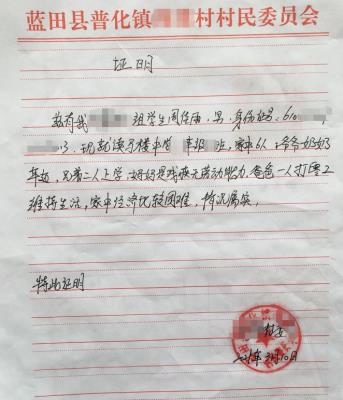 蓝田县普化镇 村村民委员会
证明
兹有我 组学生周 ,男,身份证号,610
3,现就读 楼中学 班,家中6人,爷爷奶奶
年迈,兄弟二人上学,妈妈是残疾无劳动能力,爸爸一人打零工
维持生活,家中经济比较困难,情况属实,
特此证明
村委
月10日